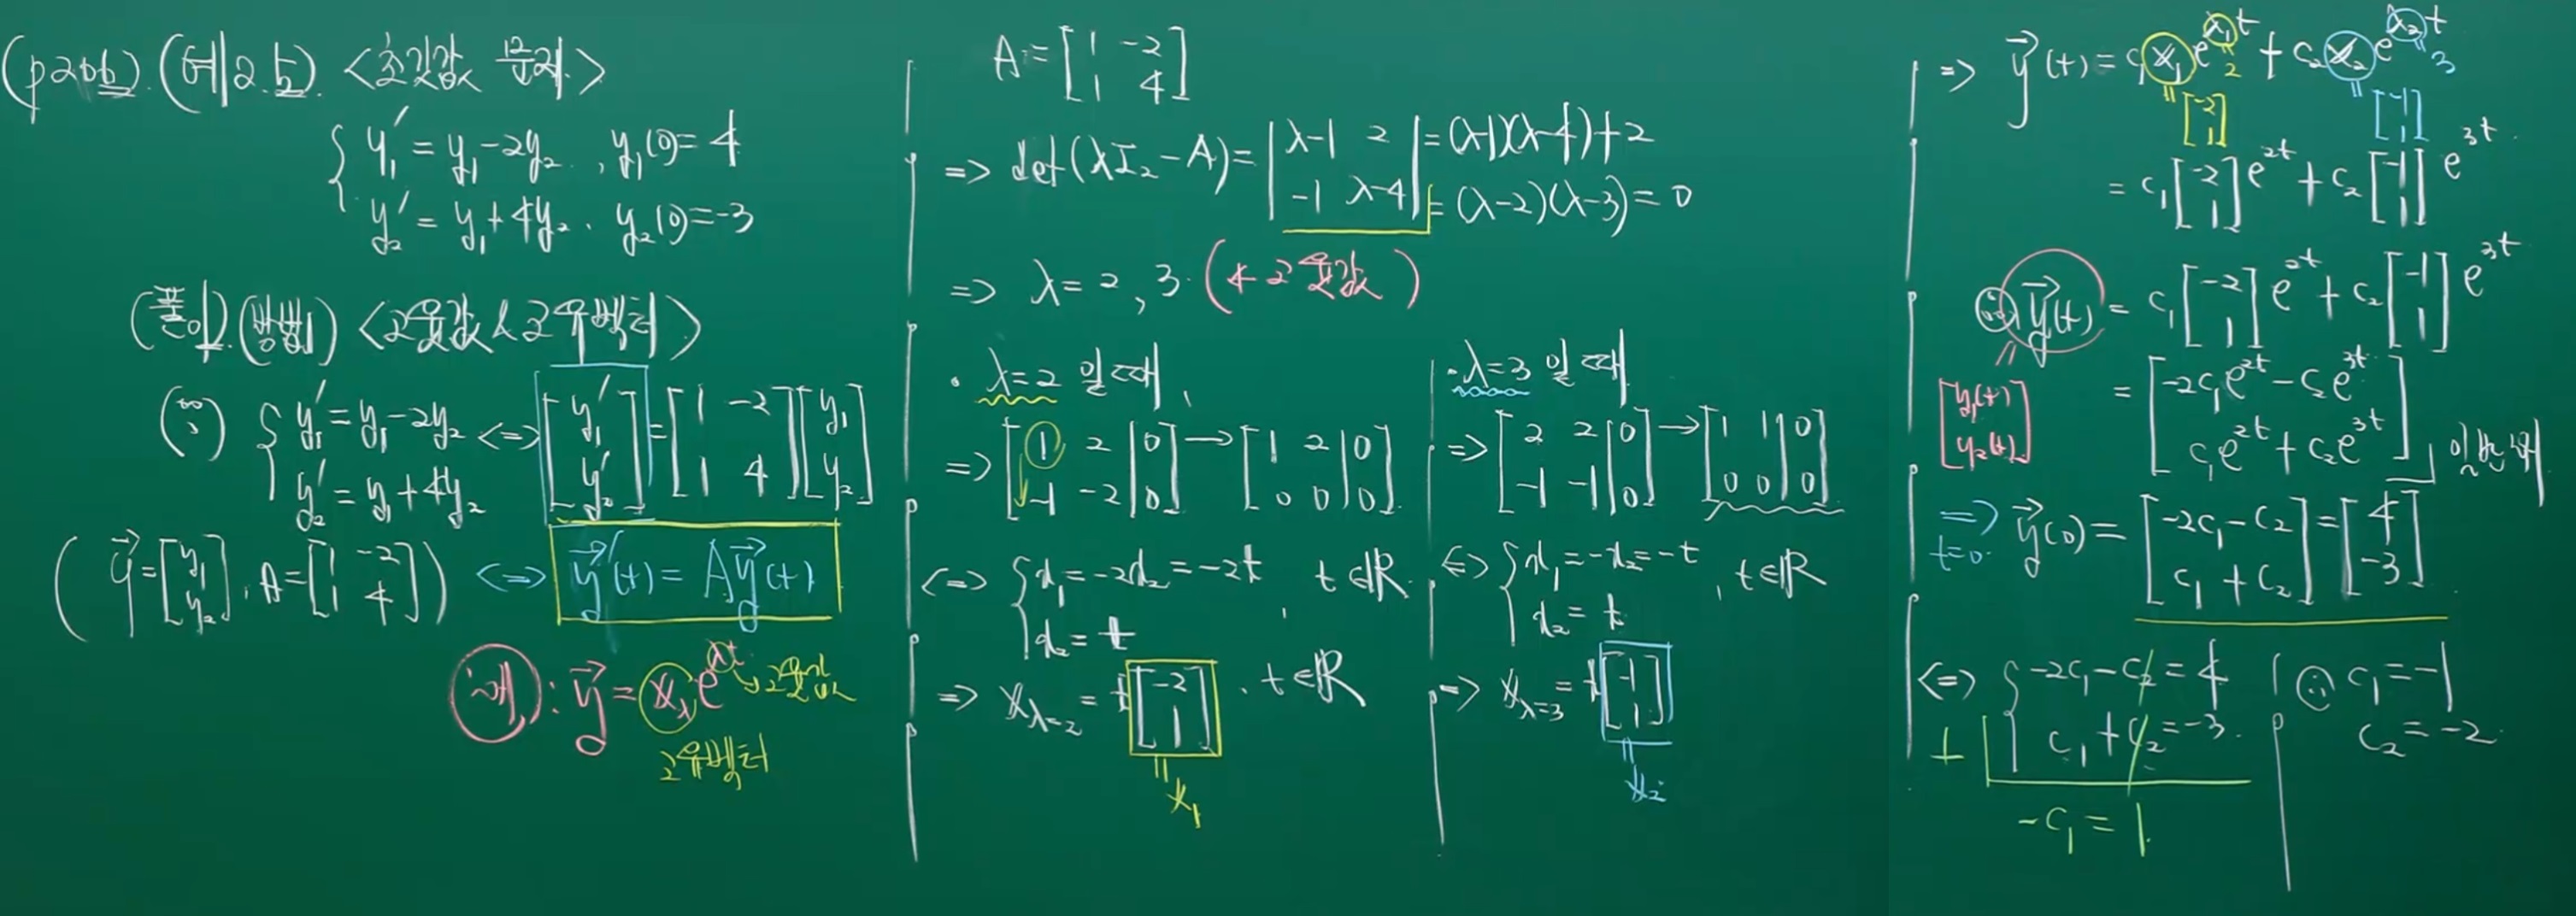 (p206). (예제2.5). <초깃값 문제>
{ y₁' = y₁-2y₂ , y₁(0)= 4
y₂' = y₁+4y₂ . y₂(0)=-3
(풀이).(방법1) <고윳값 & 고유벡터>
(∵) { y₁' = y₁-2y₂ <=> [y₁' ; y₂'] = [1 -2 ; 1 4][y₁ ; y₂]
y₂' = y₁+4y₂
( y⃗=[y₁ ; y₂] , A=[1 -2 ; 1 4] ) <=> y⃗'(t) = Ay⃗(t)
해: y⃗ = 𝕩_λ e^{λt} → 고윳값
고유벡터
A = [1 -2 ; 1 4]
=> det(λI₂-A) = |λ-1 2 ; -1 λ-4| = (λ-1)(λ-4)+2
= (λ-2)(λ-3) = 0
=> λ= 2 , 3. (← 고윳값)
· λ=2 일 때,
=> [1 2 | 0 ; -1 -2 | 0] → [1 2 | 0 ; 0 0 | 0]
<=> { x₁=-2x₂=-2t , t∈ℝ.
x₂= t
=> 𝕩_{λ=2} = t[-2 ; 1] . t∈ℝ
=
𝕩₁
· λ=3 일 때
=> [2 2 | 0 ; -1 -1 | 0] → [1 1 | 0 ; 0 0 | 0]
<=> { x₁=-x₂=-t , t∈ℝ
x₂= t
=> 𝕩_{λ=3} = t[-1 ; 1]
=
𝕩₂
=> y⃗(t) = c₁𝕩₁e^{λ₁t} + c₂𝕩₂e^{λ₂t}
= 2 = 3
= [-2 ; 1] = [-1 ; 1]
= c₁[-2 ; 1]e^{2t} + c₂[-1 ; 1]e^{3t}.
∴ y⃗(t) = c₁[-2 ; 1]e^{2t} + c₂[-1 ; 1]e^{3t}
=
[y₁(t) ; y₂(t)]
= [-2c₁e^{2t}-c₂e^{3t} ; c₁e^{2t}+c₂e^{3t}] 일반해
=> t=0. y⃗(0) = [-2c₁-c₂ ; c₁+c₂] = [4 ; -3]
<=> { -2c₁-c₂ = 4
+ c₁+c₂ = -3.
-c₁ = 1.
∴ c₁=-1
c₂=-2.